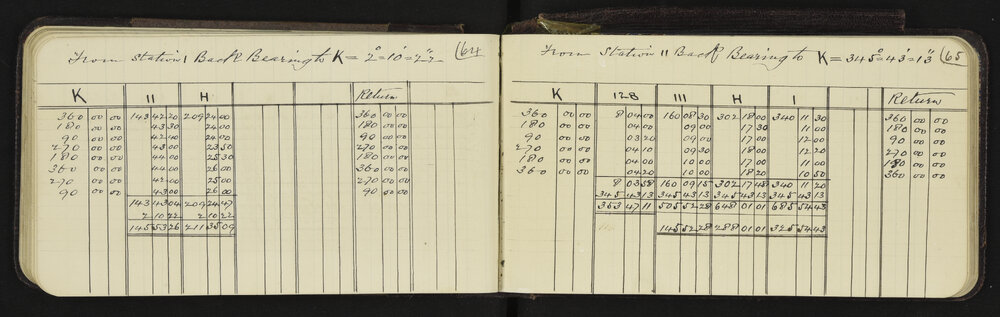 64
From Station 1 Back Bearing to K = 2° = 10' = 22"
K II H Return
360 00 00 143 42 20 209 24 00 360 00 00
180 00 00 43 30 24 00 180 00 00
90 00 00 42 40 24 00 90 00 00
270 00 00 43 00 23 50 270 00 00
180 00 00 44 00 25 30 180 00 00
360 00 00 44 00 26 00 360 00 00
270 00 00 42 00 25 00 270 00 00
90 00 00 43 00 26 00 90 00 00
143 43 04 209 24 47
2 10 22 2 10 22
145 53 26 211 35 09
65
From Station 11 Back Bearing to K = 345° = 43' = 13"
K 128 III H I Return
360 00 00 8 04 00 160 08 30 302 18 00 340 11 30 360 00 00
180 00 00 04 00 09 00 17 30 11 00 180 00 00
90 00 00 03 20 09 00 17 00 12 00 90 00 00
270 00 00 04 10 09 30 18 00 12 20 270 00 00
180 00 00 04 00 10 00 17 00 11 00 180 00 00
360 00 00 04 20 10 00 18 20 10 50 360 00 00
8 03 58 160 09 15 302 17 48 340 11 20
345 43 13 345 43 13 345 43 13 345 43 13
353 47 11 505 52 28 648 01 01 685 54 43
145 52 28 288 01 01 325 54 43